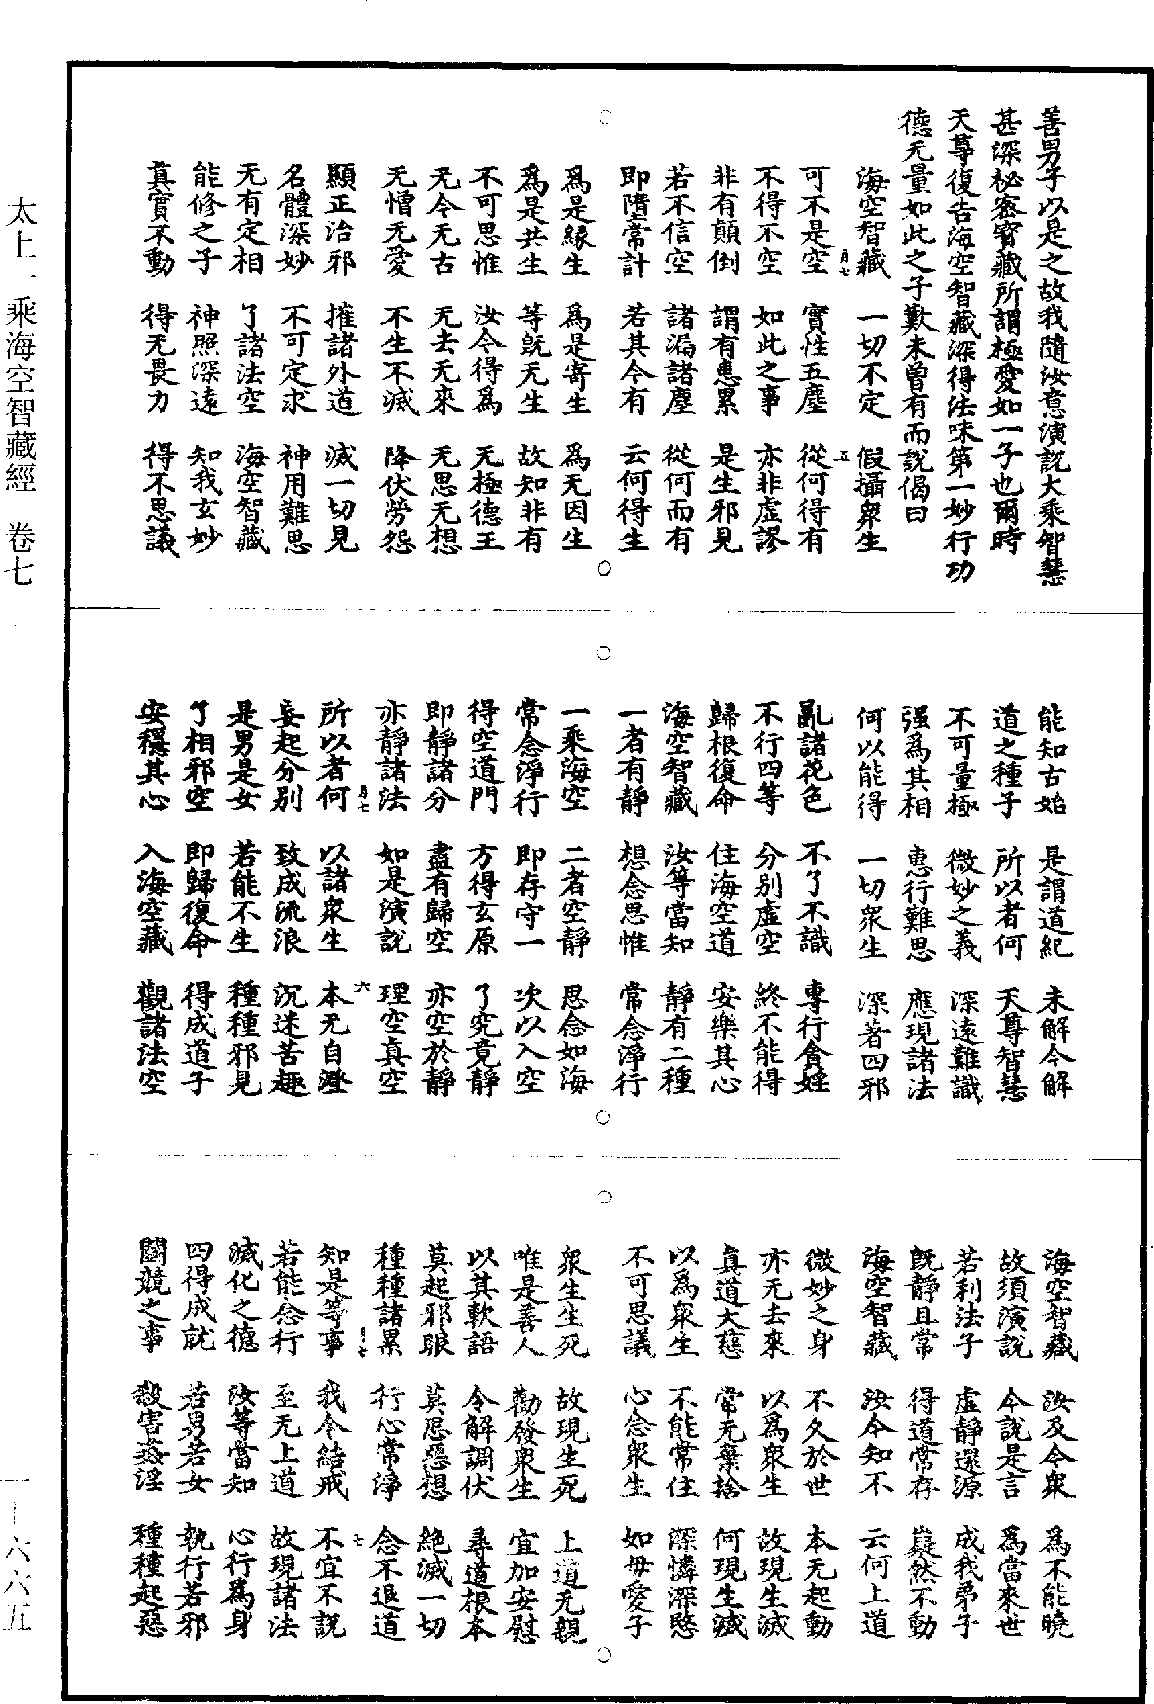 善男子以是之故我隨汝意演說大乘智慧
甚深祕密寶藏所謂極愛如一子也爾時
天尊復告海空智藏深得法味第一妙行功
德无量如此之子歎未曾有而說偈曰
海空智藏 一切不定 假攝衆生
月七 五
可不是空 實性五塵 從何得有
不得不空 如此之事 亦非虛謬
非有顛倒 謂有惠累 是生邪見
若不信空 諸漏諸塵 從何而有
即隋常計 若其今有 云何得生
爲是緣生 爲是寄生 爲无因生
爲是共生 等旣无生 故知非有
不可思惟 汝今得爲 无極德王
无今无古 无去无來 无思无想
无憎无愛 不生不滅 降伏勞怨
顯正治邪 摧諸外道 滅一切見
名體深妙 不可定求 神用難思
无有定相 了諸法空 海空智藏
能修之子 神照深遠 知我玄妙
真實不動 得无畏力 得不思議
能知古始 是謂道紀 未解令解
道之種子 所以者何 天尊智慧
不可量極 微妙之義 深遠難識
强爲其相 惠行難思 應現諸法
何以能得 一切衆生 深著四邪
亂諸花色 不了不識 專行貪婬
不行四等 分別虛空 終不能得
歸根復命 住海空道 安樂其心
海空智藏 汝等當知 靜有二種
一者有靜 想念思惟 常念淨行
一乘海空 二者空靜 思念如海
常念淨行 即存守一 次以入空
得空道門 方得玄原 了究竟靜
即靜諸分 盡有歸空 亦空於靜
亦靜諸法 如是演說 理空真空
月七 六
所以者何 以諸衆生 本无自澄
妄起分別 致成流浪 沉迷苦趣
是男是女 若能不生 種種邪見
了相邪空 即歸復命 得成道子
安穩其心 入海空藏 觀諸法空
海空智藏 汝及今衆 爲不能曉
故須演說 今說是言 爲當來世
若利法子 虛靜還源 成我弟子
旣靜且常 得道常存 嶷然不動
海空智藏 汝今知不 云何上道
微妙之身 不久於世 本无起動
亦无去來 以爲衆生 故現生滅
真道大慈 常无棄捨 何現生滅
以爲衆生 不能常住 深憐深愍
不可思議 心念衆生 如母愛子
衆生生死 故現生死 上道无親
唯是善人 勸發衆生 宜加安慰
以其軟語 令解調伏 尋道根本
莫起邪眼 莫思惡想 絶滅一切
種種諸累 行心常淨 念不退道
月七 七
知是等事 我今結戒 不宜不說
若能念行 至无上道 故現諸法
滅化之德 汝等當知 心行爲身
四得成就 若男若女 執行若邪
鬬競之事 殺害姦淫 種種起惡
太上一乘海空智藏經 卷七
一一六六五